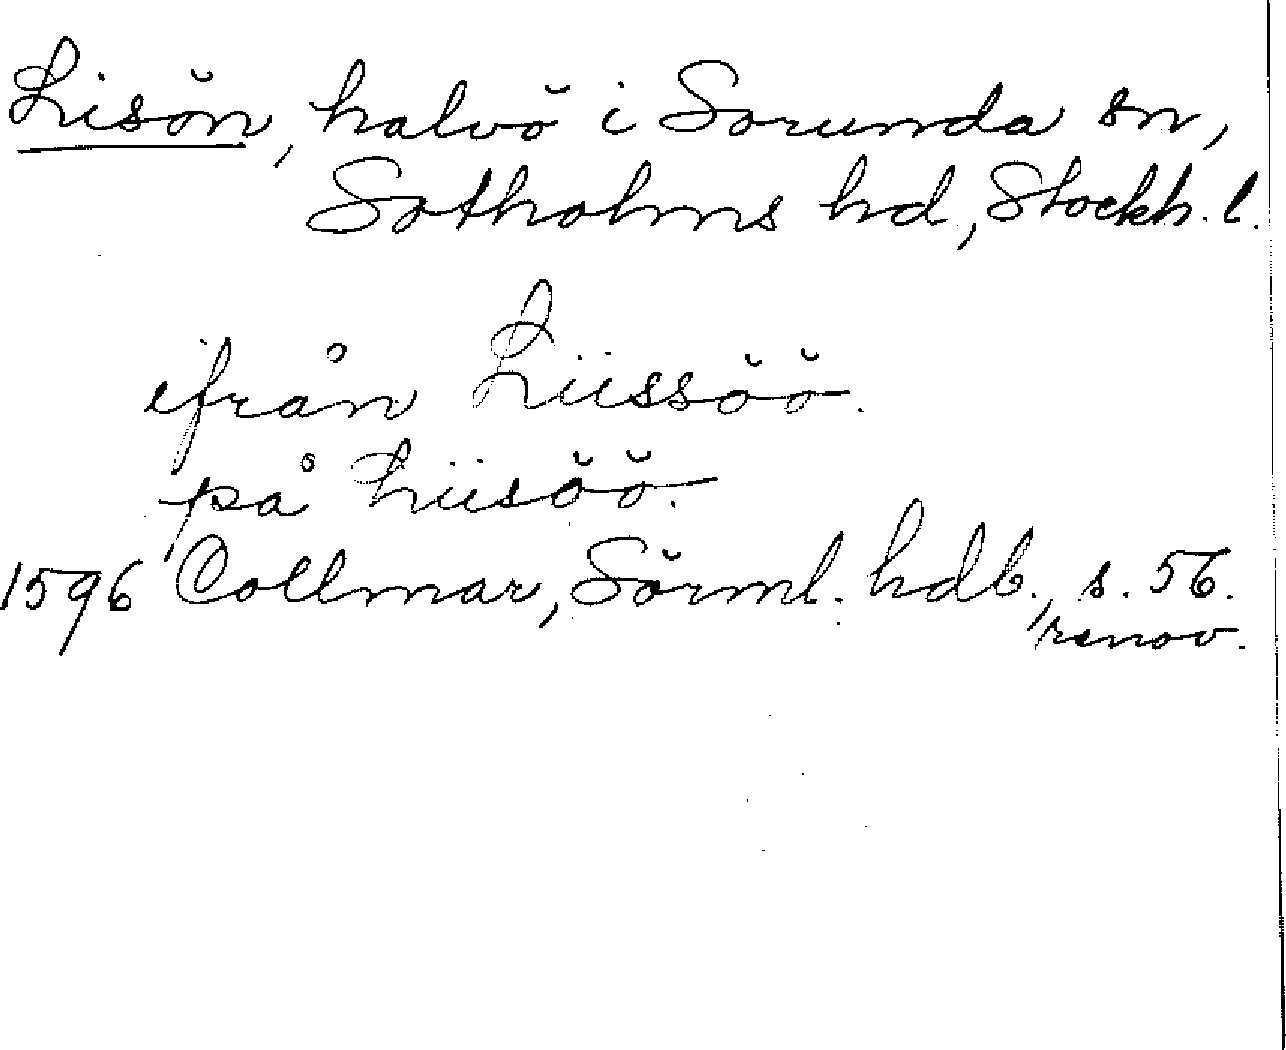 Lisön, halvö i Sorunda sn,
Sotholms hd, Stockh. l.
ifrån Liissöö.
på Liisöö.
1596 Collmar, Sörml. hdb., s. 56.
renov.